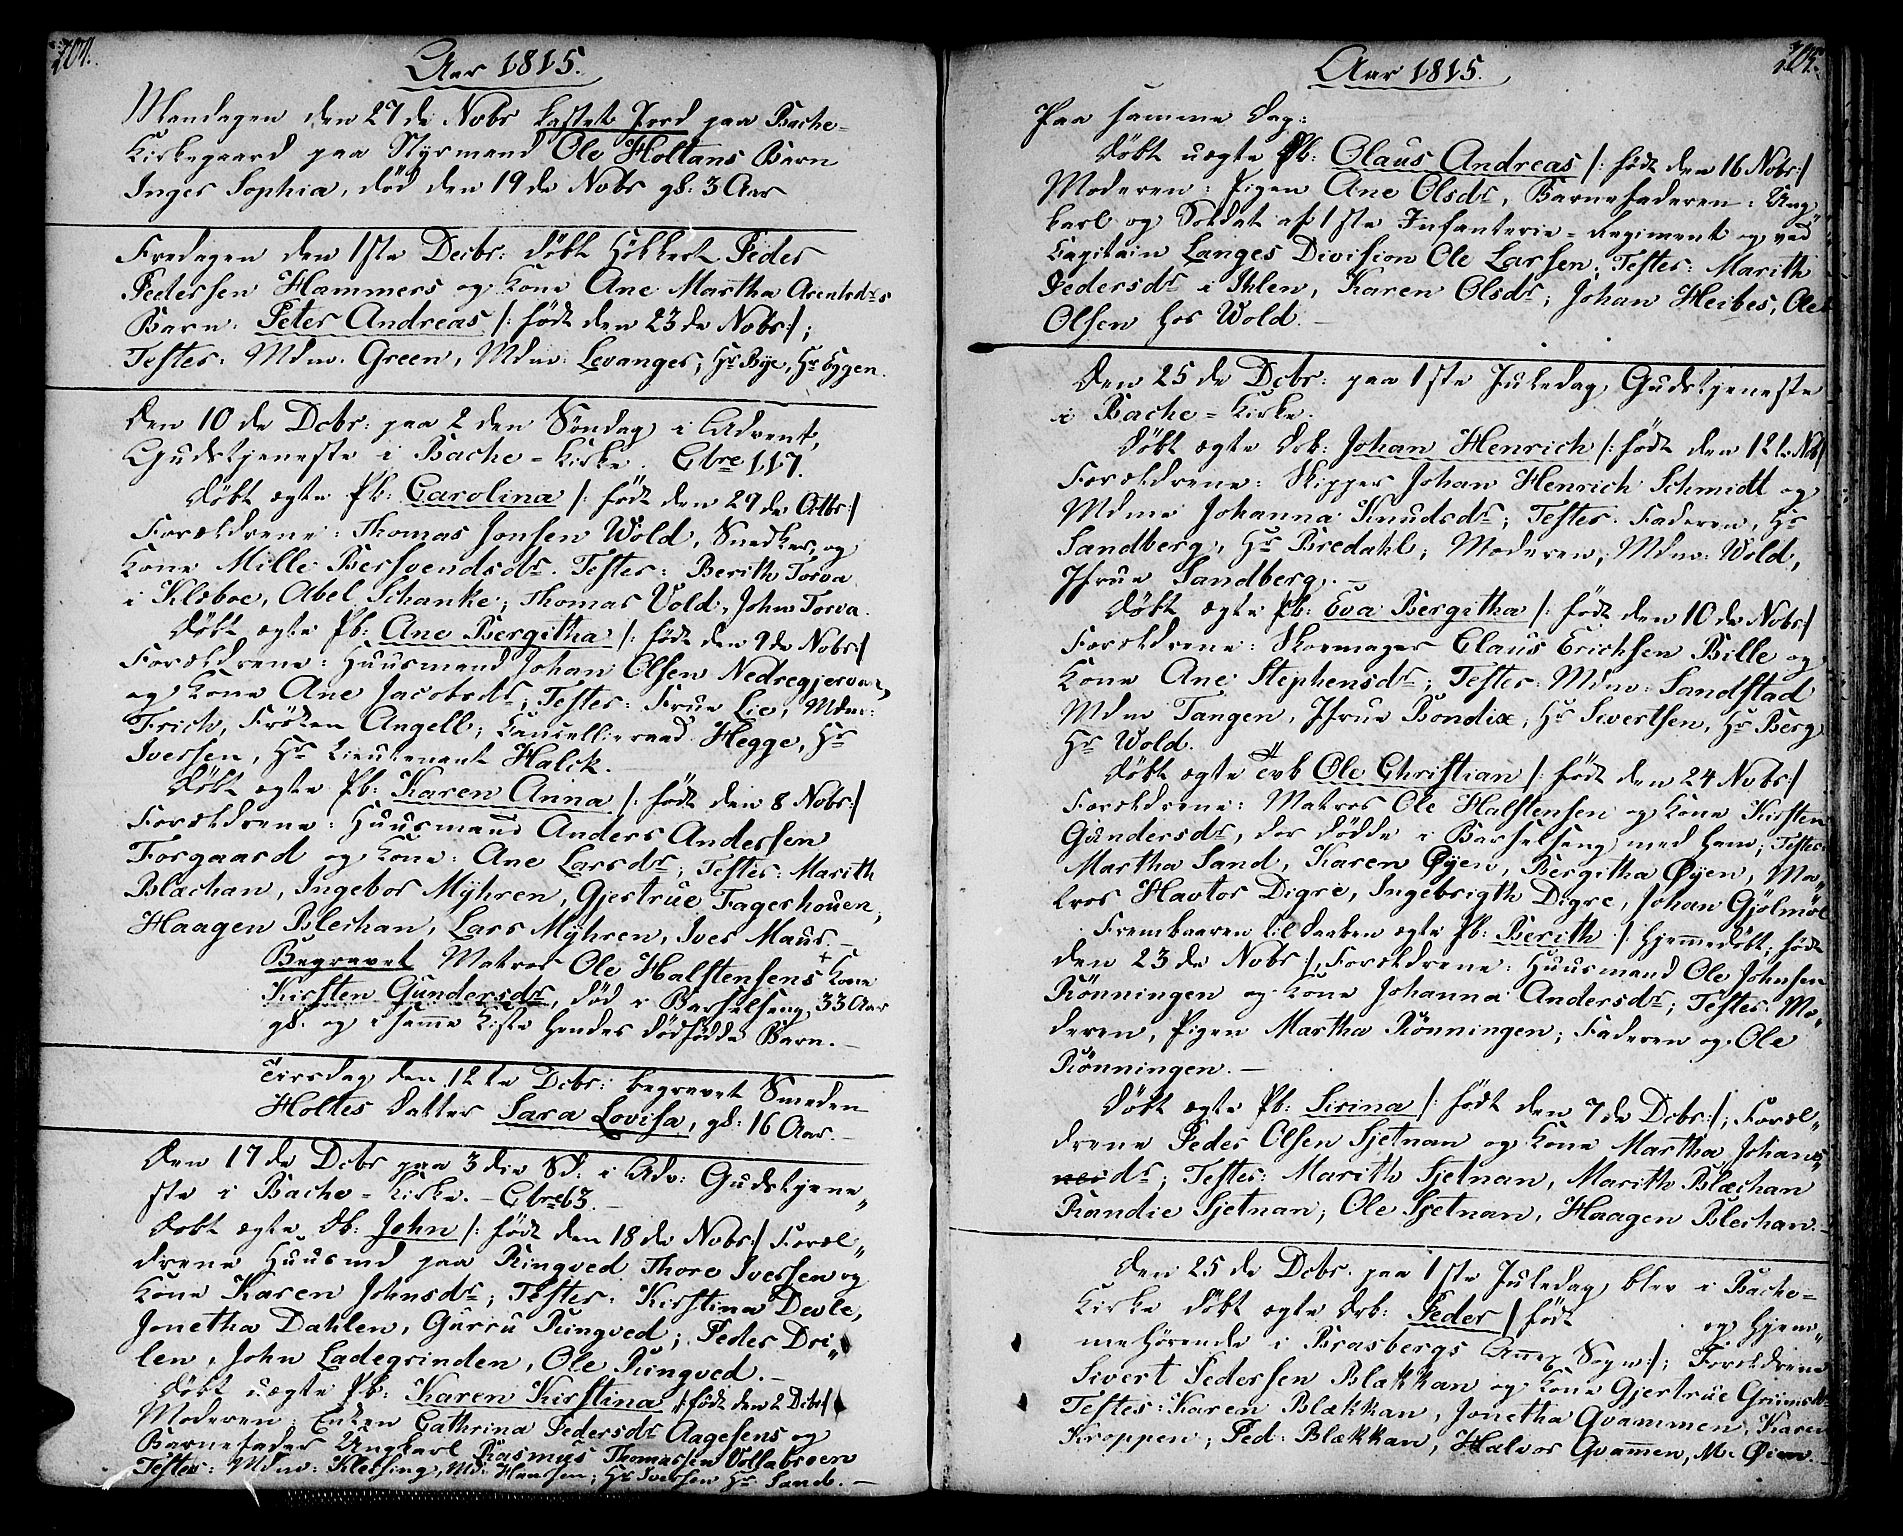 204.
Aar 1815.
Mandagen den 27de Nobr kastet Jord paa Bache-
Kirkegaard paa Styrmand Ole Holtans Barn
Inger Sophia, død den 19de Nobr gl: 3 Aar
Fredagen den 1ste Decbr: døbt Høkkert Peder
Pedersen Hammers og Kone Ane Martha Arentsdrs
Barn: Peter Andreas /: født den 23de Nobr:/;
Testes: Mdm: Green, Mdm: Levanger, Hr Bye, Hr Eggen.
Den 10de Decbr: paa 2den Søndag i Advent,
Gudstjeneste i Bache-Kirke. Cbre 117.
døbt ægte Pb: Carolina /: født den 29de Octbr:/
Forældrene: Thomas Jonsen Wold, Snedker, og
Kone Mille Bersvendsdr. Testes: Berith Torva
i Klæboe, Abel Schanke; Thomas Vold, John Torva.
døbt ægte Pb: Ane Bergitha /: født den 9de Nobr:/
Forældrene: Huusmand Johan Olsen Nedregjervan,
og Kone Ane Jacobsdr; Testes: Frue Lie, Mdm:
Frich, Frøken Angell; Cancellieraad Hegge, Hr
Iversen, Hr Lieutenant Halck.
døbt ægte Pb: Karen Anna /: født den 8 Nobr:/
Forældrene: Huusmand Anders Andersen
Forgaard og Kone: Ane Larsdr; Testes: Marith
Blæchan, Ingebor Mÿhren, Gjertrue Fagerhouen,
Haagen Blechan, Lars Mÿhren, Iver Maus.
Begravet Matros Ole Halstensens Kone
Kirsten Gundersdr, død i Barselseng, 33 Aar
gl. og i samme Kiste hendes dødfødde Barn.
Tirsdag den 12te Decbr: begravet Smeden
Holtes datter Sara Lovisa, gl: 16 Aar.
Den 17de Decbr paa 3die Sd: i Adv: Gudstjene„
ste i Bache-Kirke. Cbre 63.
døbt ægte Db: John /: født den 18de Nobr:/ Foræl„
drene Huusmd paa Ringved Thore Iversen og
Kone Karen Johnsdr; Testes: Kirstina Devle,
Jonetha Dahlen, Gurru Ringved; Peder Dri„
len, John Ladegrinden, Ole Ringved.
døbt uægte Pb: Karen Kirstina /: født den 2 Decbr:/
Moderen: Enken Cathrina Pedersdr Aagesens og
Barnefader Ungkarl Rasmus Thomassen Vollabroen
Testes: Mdm: Klefsing, Md: Hanssen; Hr Iversen Hr Sand.
205.
Aar 1815.
Paa samme Dag:
døbt uægte Pb: Olaus Andreas /: født den 16 Nobr:/
Moderen: Pigen Ane Olsdr, Barnefaderen: Ung„
karl og Soldat af 1ste Infanterie-Regiment og ved
Capitain Langes Division Ole Larsen; Testes: Marith
Pedersdr i Ihlen, Karen Olsdr; Johan Heibes, Ole
Olsen hos Wold.
Den 25de Decbr: paa 1ste Juledag Gudstjeneste
i Bache-Kirke.
døbt ægte Drb: Johan Henrich /: født den 12te Nobr/
Forældrene: Skipper Johan Henrich Schmidt og
Mdme Johanna Knudsdr; Testes: Faderen, Hr
Sandberg, Hr Bredahl; Moderen, Mdm: Wold,
Jfrue Sandberg.
døbt ægte Pb: Eva Bergitha /: født den 10de Nobr:/
Forældrene: Skoemager Claus Erichsen Bille og
Kone Ane Stephensdr; Testes: Mdm: Sandstad
Mdm Tangen, Jfrue Bondix, Hr Sivertsen, Hr Berg
Hr Wold.
døbt ægte Drb Ole Christian /: født den 24 Nobr:/
Forældrene: Matros Ole Halstensen og Kone Kirsten
Gundersdr, der dødde i Barselseng med ham; Testes:
Martha Sand, Karen Øyen, Bergitha Øyen, Ma„
tros Havtor Digre, Ingebrigth Digre, Johan Gjølmøl
Frembaaren til daaben ægte Pb: Berith /: hjemmedøbt; født
den 23de Nobr:/, Forældrene: Huusmand Ole Johnsen
Rønningen og Kone Johanna Andersdr; Testes: Mo„
deren, Pigen Martha Rønningen; Faderen og Ole
Rønningen.
døbt ægte Pb: Sirina /: født den 7de Decbr:/; Foræl„
drene Peder Olsen Sjetnan og Kone Martha Johans
dr; Testes: Marith Sjetnan, Marith Blæchan
Randie Sjetnan; Ole Sjetnan, Haagen Blechan.
Den 25de Decbr. paa 1ste Juledag blev i Bache-
Kirke døbt ægte Drb: Peder /: født og hjem„
me hørende i Bratsbergs Annex Sogn:/; Forældrene
Sivert Pedersen Blækkan og Kone Gjertrue Grimsdr
Testes: Karen Blækkan, Jonetha Qvammen, Karen
Kroppen; Ped: Blækkan, Halvor Qvammen, M: Øien.